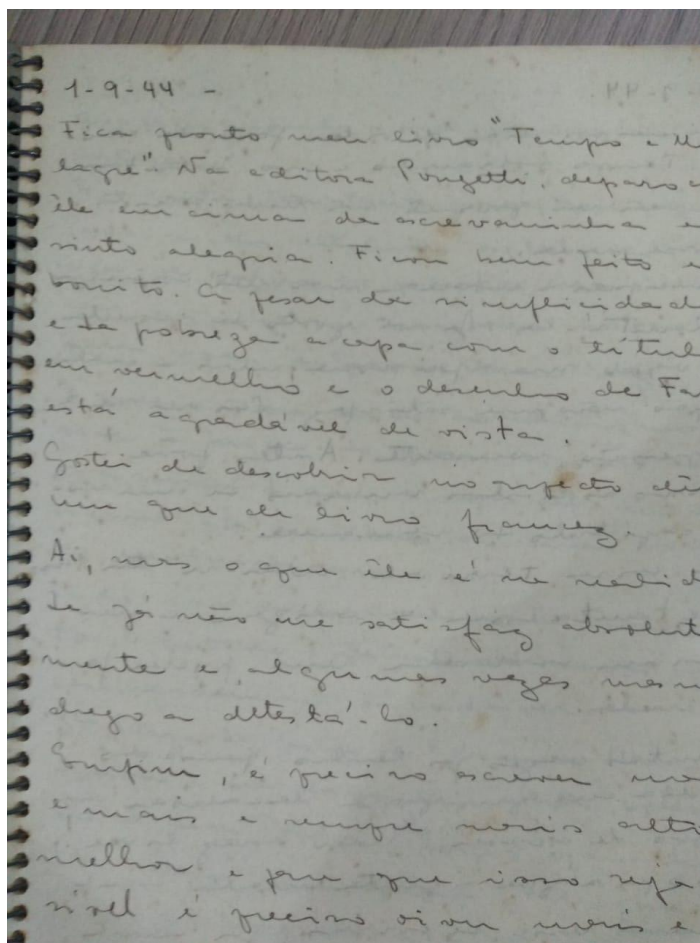 1-9-44 -
Fica pronto meu livro "Tempo e M
lagre". Na editora Pongetti, deparo c
êle em cima da escrevaninha e
sinto alegria. Ficou bem feito e
bonito. A pesar da simplicidad
e da pobreza a capa com o títul
em vermelho e o desenho de Fa
está agradável de vista.
Gostei de descobrir no aspecto dê
um que de livro francez.
Ai, mas o que êle é na realid
de já não me satisfaz absolut
mente e algumas vezes mesm
chego a detestá-lo.
Emfim, é preciso escrever ma
e, mais e sempre mais alto
melhor e pra que isso seja
sivel é preciso viver mais e